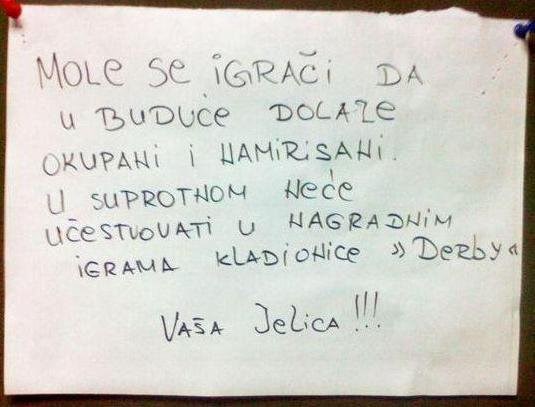 MOLE SE IGRAČI DA
U BUDUĆE DOLAZE
OKUPANI I NAMIRISANI.
U SUPROTNOM NEĆE
UČESTVOVATI U NAGRADNIM
IGRAMA KLADIONICE »Derby«
VAŠA Jelica!!!